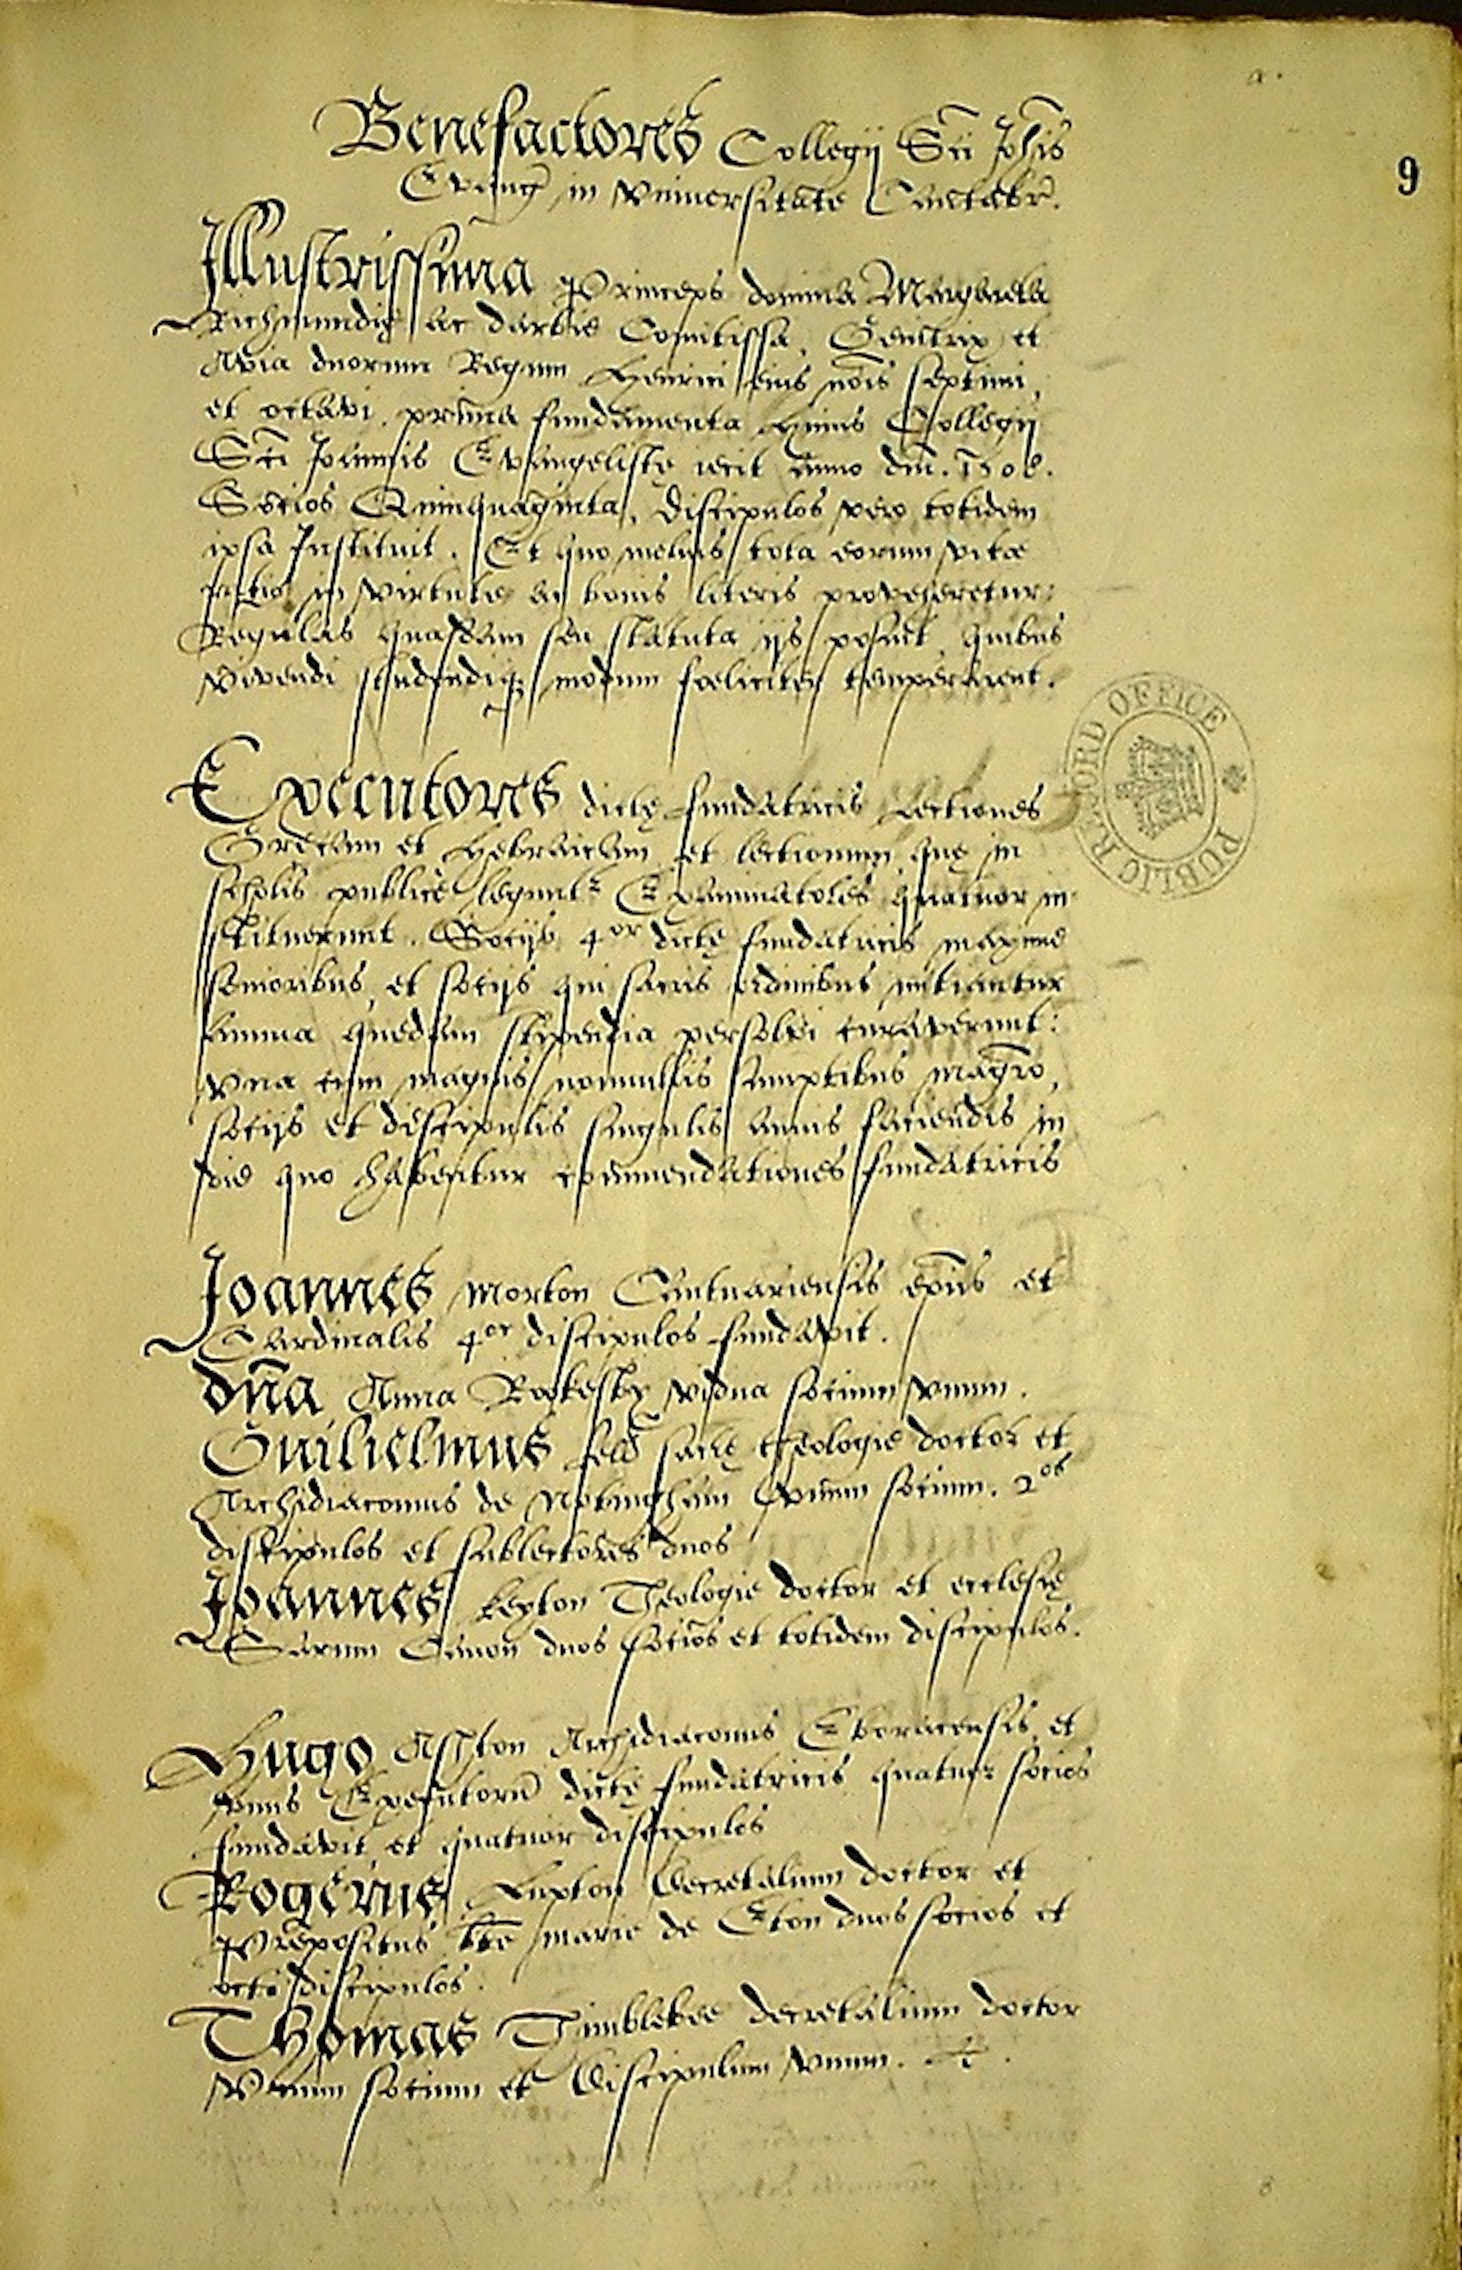 a.
9
Benefactores Collegij Sti Johis
Evang in Universitate Cantabr.
Illustrissima Princeps domina Margareta
Richmundie ac Darbie Comitissa, Genitrix et
Avia duorum Regum Henrici eius nois septimi,
et octavi, prima fundamenta huius Collegij
Sti Joannis Evangelistę iecit Anno dni. 1508.
Socios Quinquaginta, discipulos vero totidem
ipsa Instituit. Et quo melius tota eorum vitae
ratio in virtute ac bonis literis proveheretur:
Regulas quasdam seu statuta ijs posuit quibus
vivendi studendiq modum foeliciter temperarent.
Executores dictę fundatricis Lectiones
Grecam et Hebraicam et lectionum quę in
scholis publice legunt Examinatores quatuor in
stituerunt. Socijs 4or dictę fundatricis maxime
senioribus, et socijs qui sacris ordinibus initiantur
annua quedam stipendia persolvi curaverunt:
Una cum magnis nonnullis sumptibus magro,
socijs et discipulis singulis annis faciendis in
die quo habentur commendationes fundatricis
Joannes Morton Cantuariensis epus et
Cardinalis 4or discipulos fundavit.
Dna Anna Rokesby vidua socium unum.
Guilielmus fell sacrę theologie doctor et
Archidiaconus de Notingham unum socium. 2os
discipulos et sublectores duos
Joannes keyton Theologie doctor et ecclesię
Sarum Canon duos socios et totidem discipulos.
Hugo Ashton Archidiaconus Eboracensis et
unus Executoru dictę fundatricis quatuor socios
fundavit et quatuor discipulos
Rogerus Lupton Decretalium doctor et
Prepositus bte marie de Eton duos socios et
octo discipulos.
Thomas Thimblebee decretalium doctor
Unum socium et Discipulum unum.
PUBLIC RECORD OFFICE